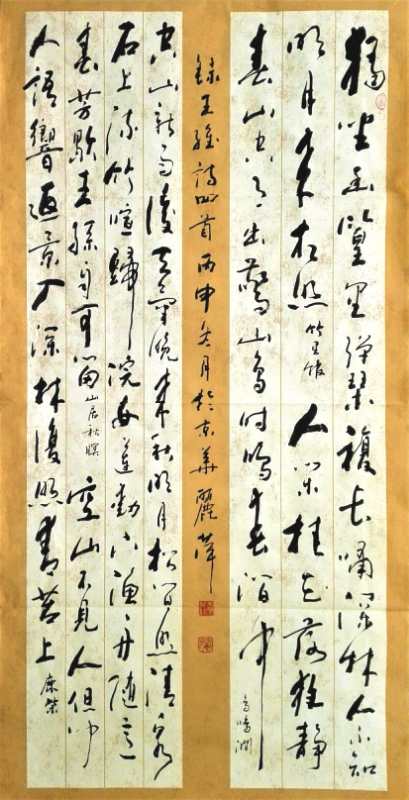 獨坐幽篁里弹琴複长啸深林人不知
明月来相照 竹里馆 人闲桂花落夜静
春山空月出驚山鸟时鸣春涧中 鸟鸣涧
錄王维詩四首丙申冬月於京華麗萍
空山新雨後天气晚来秋明月松间照清泉
石上流竹喧歸浣女莲動下渔舟随意
春芳歇王孫自可留 山居秋暝 空山不見人但闻
人語響返景入深林復照青苔上 鹿柴